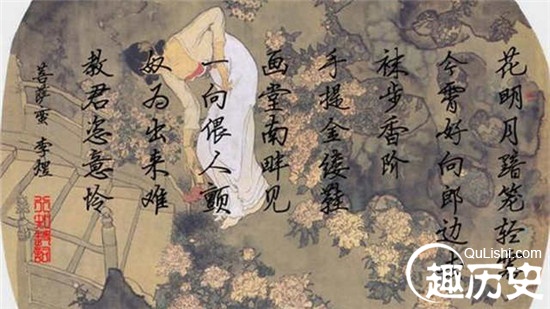 花明月黯笼轻雾
今霄好向郎边去
袜步香阶
手提金缕鞋
画堂南畔见
一向偎人颤
奴为出来难
教君恣意怜
菩萨蛮 李煜
QuLishi.com
趣历史